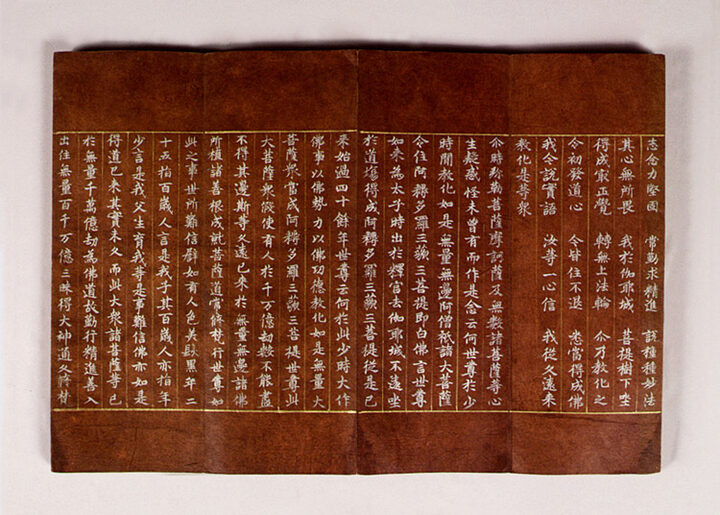 志念力堅固 常勤求精進 說種種妙法
其心無所畏 我於伽耶城 菩提樹下坐
得成冣正覺 轉無上法輪 尒乃教化之
令初發道心 今皆住不退 悉當得成佛
我今說實語 汝等一心信 我從久遠来
教化是等衆
尒時弥勒菩薩摩訶薩及無數諸菩薩等心
生疑惑怪未曾有而作是念云何世尊於少
時間教化如是無量無邊阿僧祇諸大菩薩
令住阿耨多羅三藐三菩提即白佛言世尊
如来為太子時出於釋宮去伽耶城不遠坐
於道場得成阿耨多羅三藐三菩提從是已
来始過四十餘年世尊云何於此少時大作
佛事以佛勢力以佛功德教化如是無量大
菩薩衆當成阿耨多羅三藐三菩提世尊此
大菩薩衆假使有人於千万億劫數不能盡
不得其邊斯等久遠已来於無量無邊諸佛
所植諸善根成就菩薩道常修梵行世尊如
此之事世所難信譬如有人色美髮黑年二
十五指百歲人言是我子其百歲人亦指年
少言是我父生育我等是事難信佛亦如是
得道已来其實未久而此大衆諸菩薩等已
於無量千萬億劫為佛道故勤行精進善入
出住無量百千万億三昧得大神通久修梵